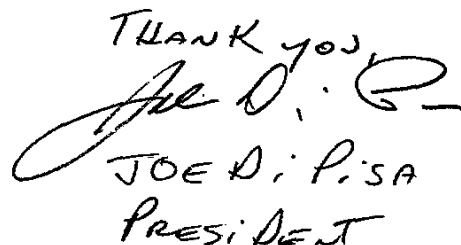 THANK YOU,
Joe Di P
JOE Di PiSA
PRESiDENT